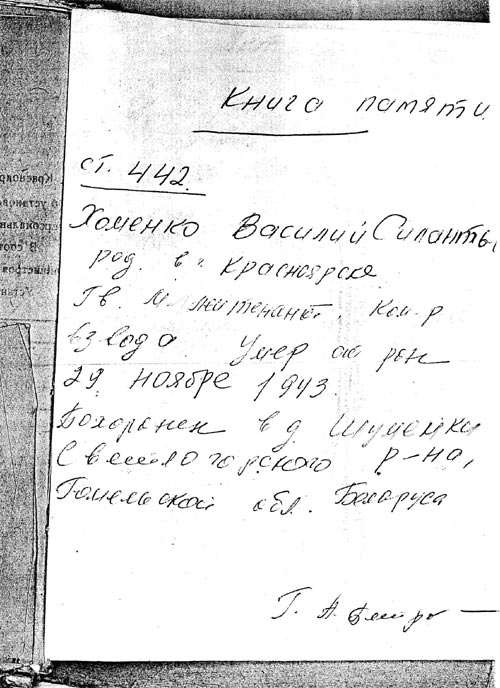 Книга памяти.
ст. 442.
Хоменко Василий Силанть
род. в г. Красноярске
Гв. мл. лейтенант. Ком-р
взвода. Умер от ран
29 ноября 1943.
Похоронен в д Шупейки
Светлогорского р-на,
Гомельской обл. Беларуса
Г. А.
Краснояр
установ
В соот
Устан